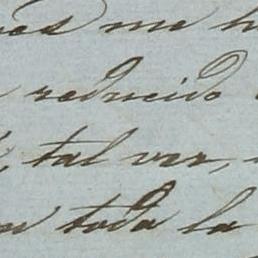 me h
reducido
, tal vez,
toda la